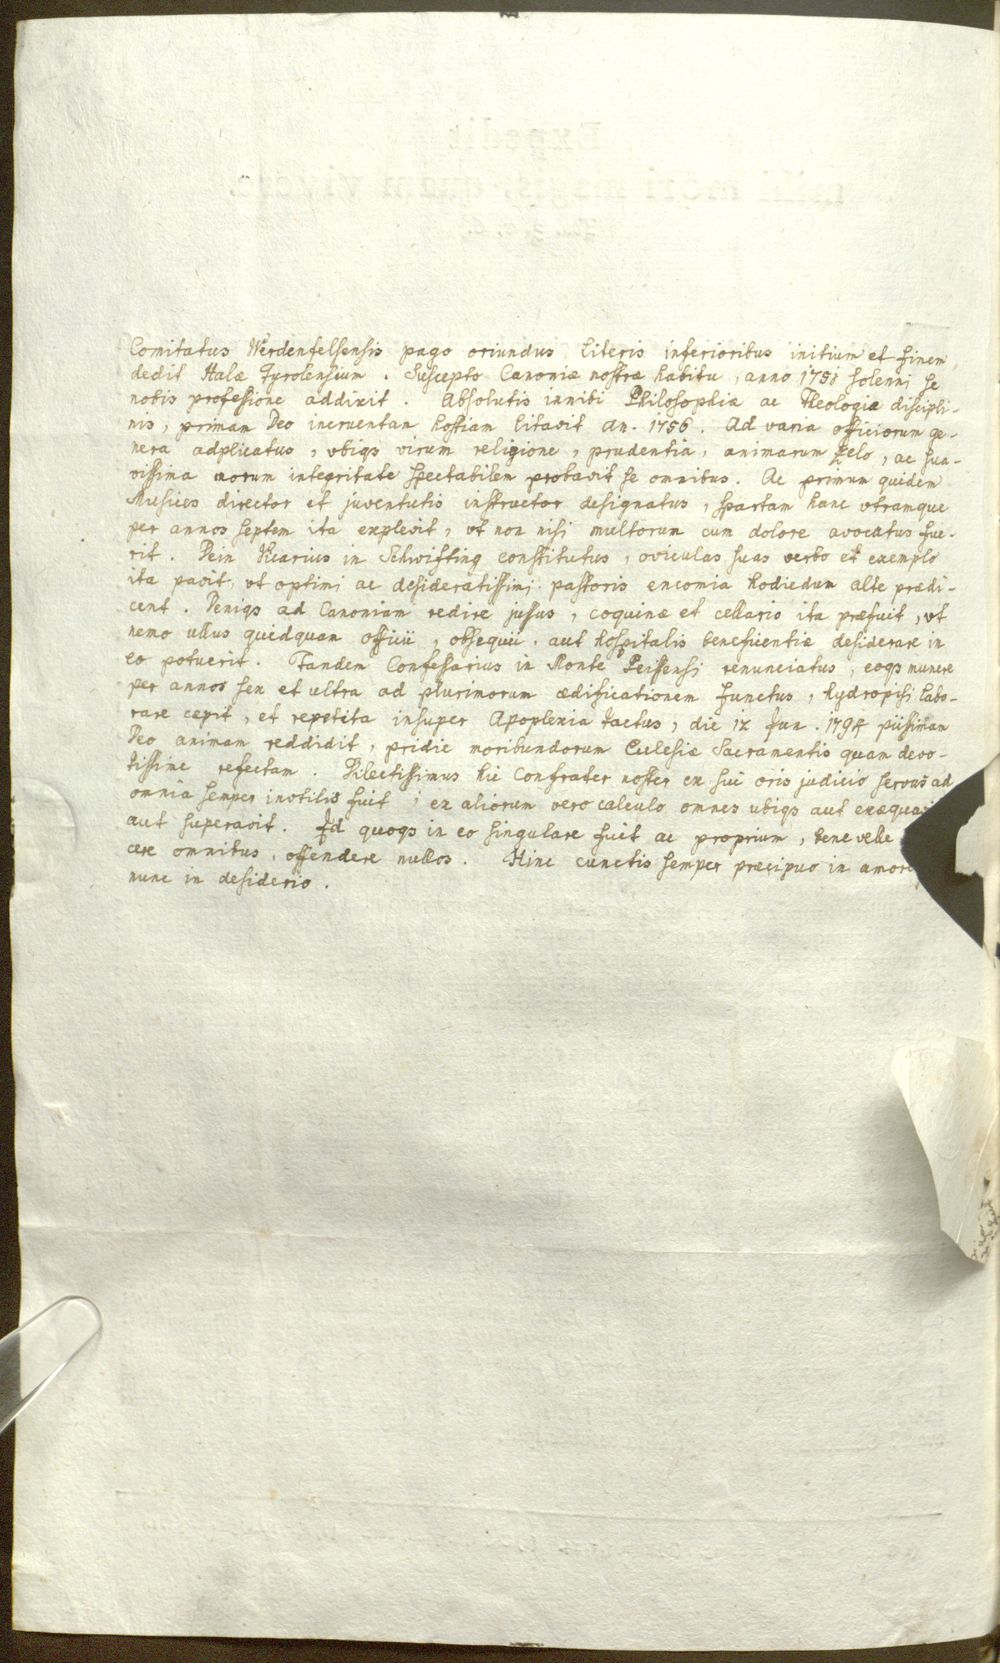 Comitatus Werdenfelsensis pago oriundus literis inferioribus initium et finem
dedit Halæ Tyrolensium. Suscepto Canoniæ nostræ habitu, anno 1751 solenni se
nobis professione addixit. Absolutis innibi Philosophiæ ac Theologiæ discipli-
nis, primam Deo incruentam hostiam litavit an. 1756. Ad varia officiorum ge-
nera adplicatus, vbiqs virum religione, prudentia, animarum zelo, ac sua-
vissima morum integritate spectabilem probavit se omnibus. Ac primum quidem
Musices director et juventutis instructor designatus, spartam hanc vtramque
per annos septem ita explevit, vt non nisi multorum cum dolore avocatus fue-
rit. Dein Vicarius in Schwifting constitutus, oviculas suas verbo et exemplo
ita pavit, vt optimi ac desideratissimi pastoris encomia hodiedum alte prædi-
cent. Deniqs ad Canoniam redire jussus, coquinæ et cellario ita præfuit, vt
nemo ullus quidquam officii, obsequii, aut hospitalis beneficentiæ desiderare in
eo potuerit. Tandem Confessarius in Monte Peissensi renunciatus, eoqs munere
per annos sex et ultra ad plurimorum ædificationem functus, hydropisi labo-
rare cæpit, et repetita insuper Apoplexia tactus, die 12 Jan. 1794 piissimam
Deo animam reddidit, pridie moribundorum Ecclesiæ Sacramentis quam devo-
tissime refectam. Dilectissimus hic Confrater noster ex sui oris judicio servus ad
omnia semper inutilis fuit, ex aliorum vero calculo omnes ubiqs aut exæqua
aut superavit. Id quoqs in eo singulare fuit ac proprium, bene velle
cere omnibus, offendere nullos. Hinc cunctis semper præcipuo in amore
nunc in desiderio.